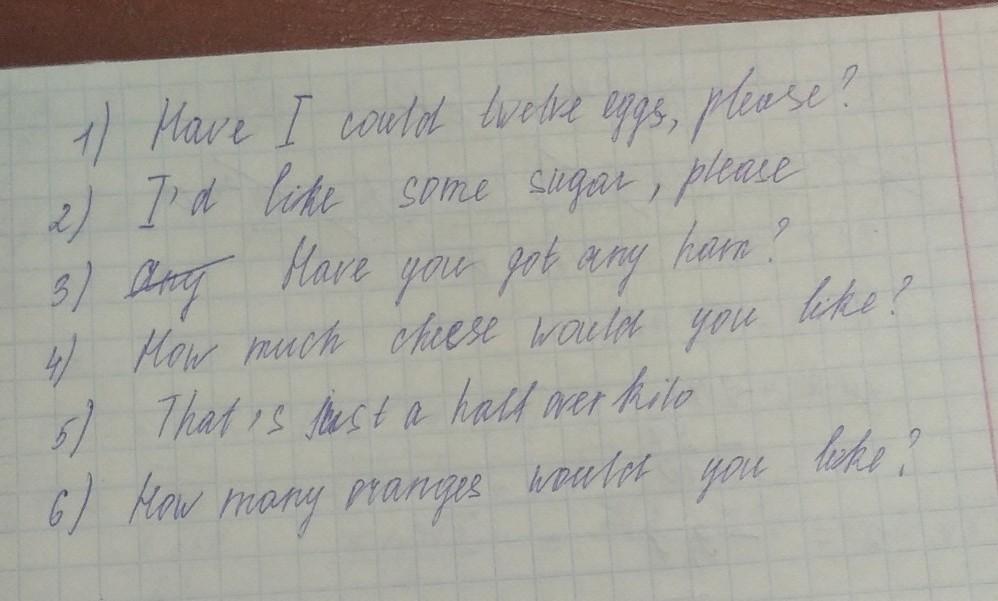 1) Have I could twelve eggs, please?
2) I'd like some sugar, please
3) any Have you got any ham?
4) How much cheese would you like?
5) That's just a half over kilo
6) How many oranges would you like?